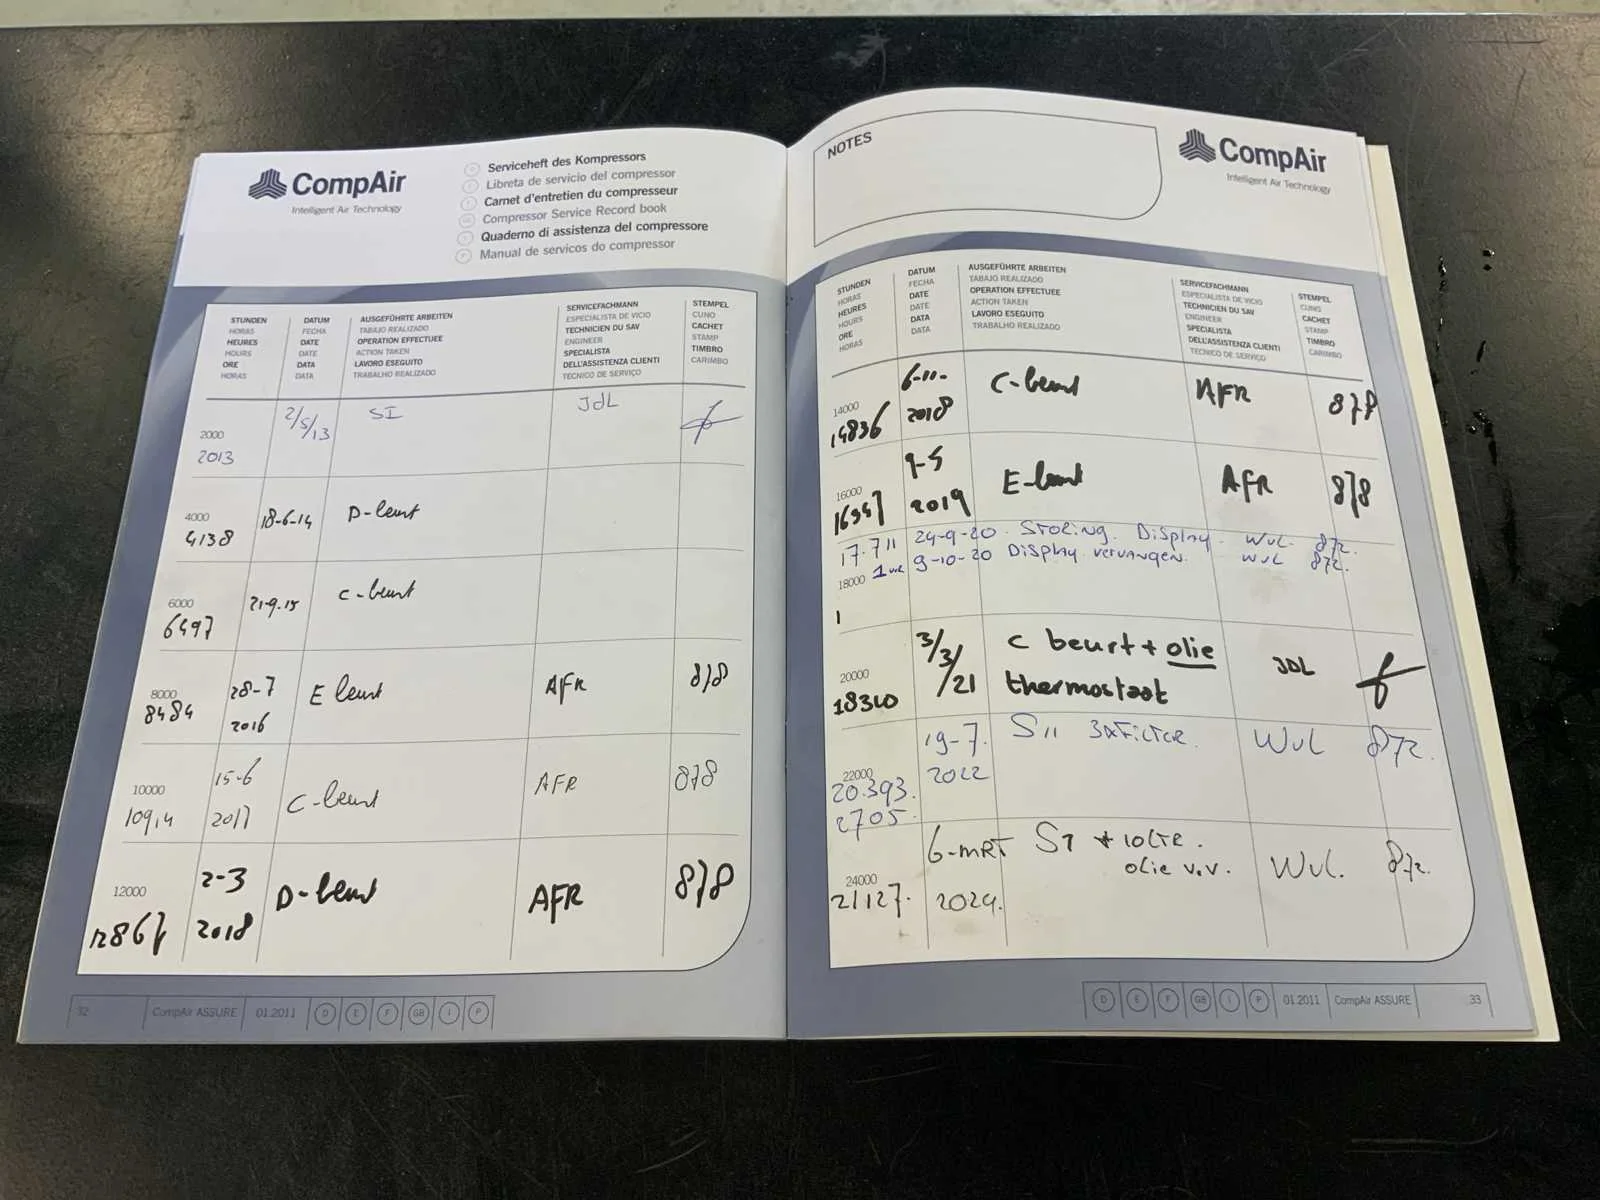 CompAir
Intelligent Air Technology
Serviceheft des Kompressors
Libreta de servicio del compressor
Carnet d'entretien du compresseur
Compressor Service Record book
Quaderno di assistenza del compressore
Manual de servicos do compressor
STUNDEN DATUM AUSGEFÜHRTE ARBEITEN SERVICEFACHMANN STEMPEL
HORAS FECHA TABAJO REALIZADO ESPECIALISTA DE VICIO CUNO
HEURES DATE OPERATION EFFECTUEE TECHNICIEN DU SAV CACHET
HOURS DATE ACTION TAKEN ENGINEER STAMP
ORE DATA LAVORO ESEGUITO SPECIALISTA TIMBRO
HORAS DATA TRABALHO REALIZADO DELL'ASSISTENZA CLIENTI CARIMBO
TECNICO DE SERVIÇO
2/5/13 SI JdL
2000
2013
4000 18-6-14 D-beurt
4138
6000 21-9-15 C-beurt
6497
8000 28-7 E beurt AFR 878
8484 2016
10000 15-6 C-beurt AFR 878
2017
12000 2-3 D-beurt AFR 878
2018
32 CompAir ASSURE 01.2011 D E F GB I P
NOTES
CompAir
Intelligent Air Technology
STUNDEN DATUM AUSGEFÜHRTE ARBEITEN SERVICEFACHMANN STEMPEL
HORAS FECHA TABAJO REALIZADO ESPECIALISTA DE VICIO CUNO
HEURES DATE OPERATION EFFECTUEE TECHNICIEN DU SAV CACHET
HOURS DATA ACTION TAKEN ENGINEER STAMP
ORE DATA LAVORO ESEGUITO SPECIALISTA TIMBRO
HORAS TRABALHO REALIZADO DELL'ASSISTENZA CLIENTI CARIMBO
TECNICO DE SERVIÇO
14000 6-11- C-beurt AFR 878
14836 2018
16000 9-5 E-beurt AFR 878
2019
17.711 24-9-20. Storing. Display. WvL. 872.
18000 1 uur 9-10-20 Display vervangen. WvL 872.
1
20000 3/3/21 C beurt + olie JDL
18310 thermostaat
22000 19-7. S11 3xFilter. WvL 872.
20.393. 2022
2705.
24000 6-MRT S1 + 10LTR. WvL. 872.
olie v.v.
21127. 2024.
D E F GB I P 01.2011 CompAir ASSURE 33